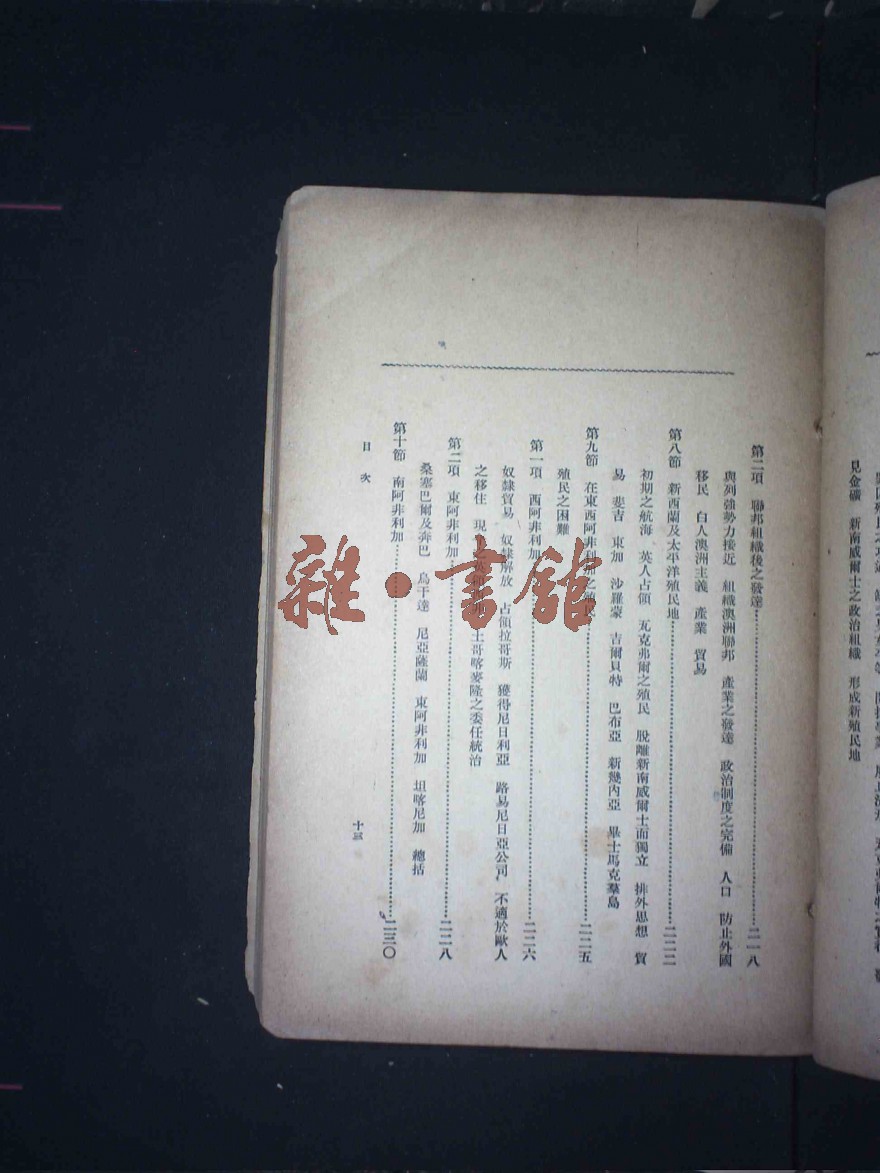 見金礦 新南威爾士之政治組織 形成新殖民地
第二項 聯邦組織後之發達 二一八
與列強勢力接近 組織澳洲聯邦 產業之發達 政治制度之完備 人口 防止外國
移民 白人澳洲主義 產業 貿易
第八節 新西蘭及太平洋殖民地 二二二
初期之航海 英人占領 瓦克弗爾之殖民 脫離新南威爾士而獨立 排外思想 貿
易 斐吉 東加 沙羅蒙 吉爾貝特 巴布亞 新幾內亞 畢士馬克羣島
第九節 在東西阿非利加之殖民 二二五
殖民之困難
第一項 西阿非利加 二二六
奴隸貿易 奴隸解放 占領拉哥斯 獲得尼日利亞 路易尼日亞公司 不適於歐人
之移住 現 士哥喀麥隆之委任統治
第二項 東阿非利加 二二八
桑塞巴爾及奔巴 烏干達 尼亞薩蘭 東阿非利加 坦喀尼加 總括
第十節 南阿非利加 二三〇
目次
十三
雜·書館